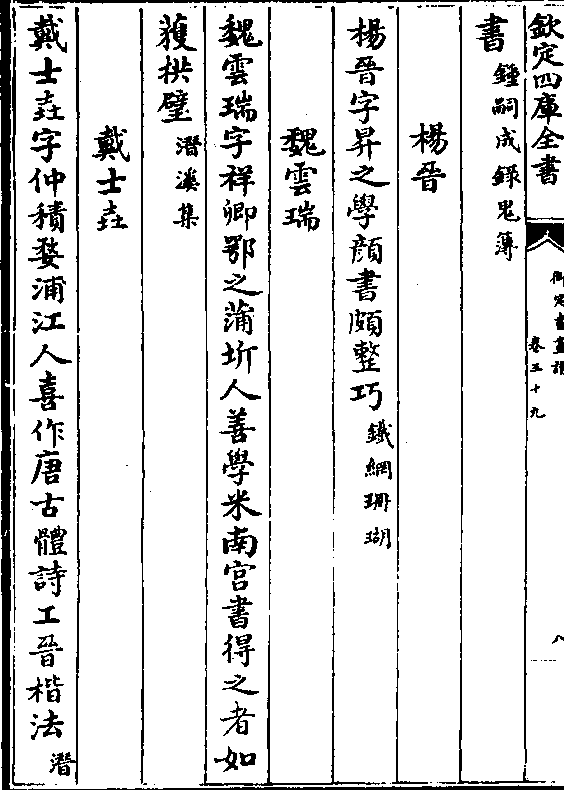 欽定四庫全書
御定書畫譜
卷五十九
八
書鍾嗣成錄鬼簿
楊晉
楊晉字昇之學顔書頗整巧鐵網珊瑚
魏雲瑞
魏雲瑞字祥卿鄂之蒲圻人善學米南宫書得之者如
獲拱璧潛溪集
戴士垚
戴士垚字仲積婺浦江人喜作唐古體詩工晉楷法潛